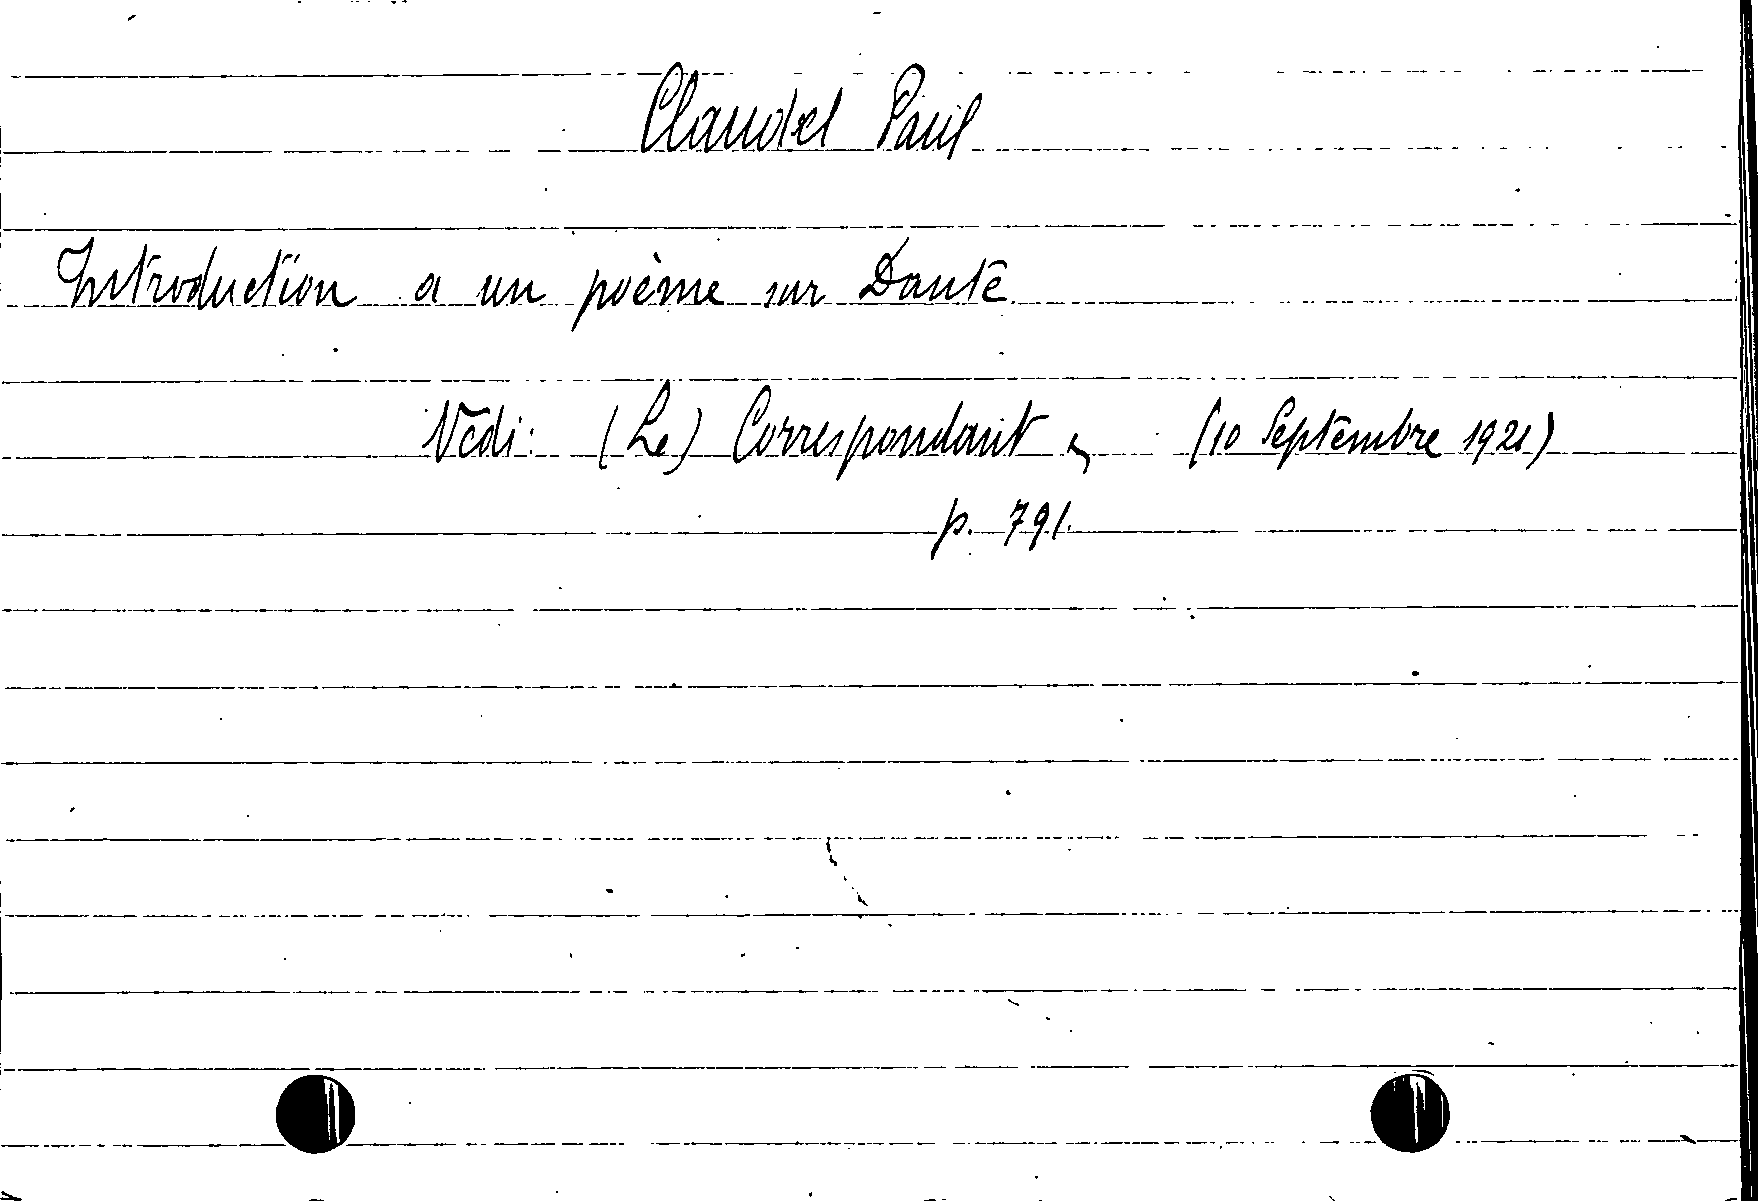 Claudel Paul
Introduction a un poème sur Dante
Vedi: (Le) Correspondant, (10 Septembre 1921)
p. 791.